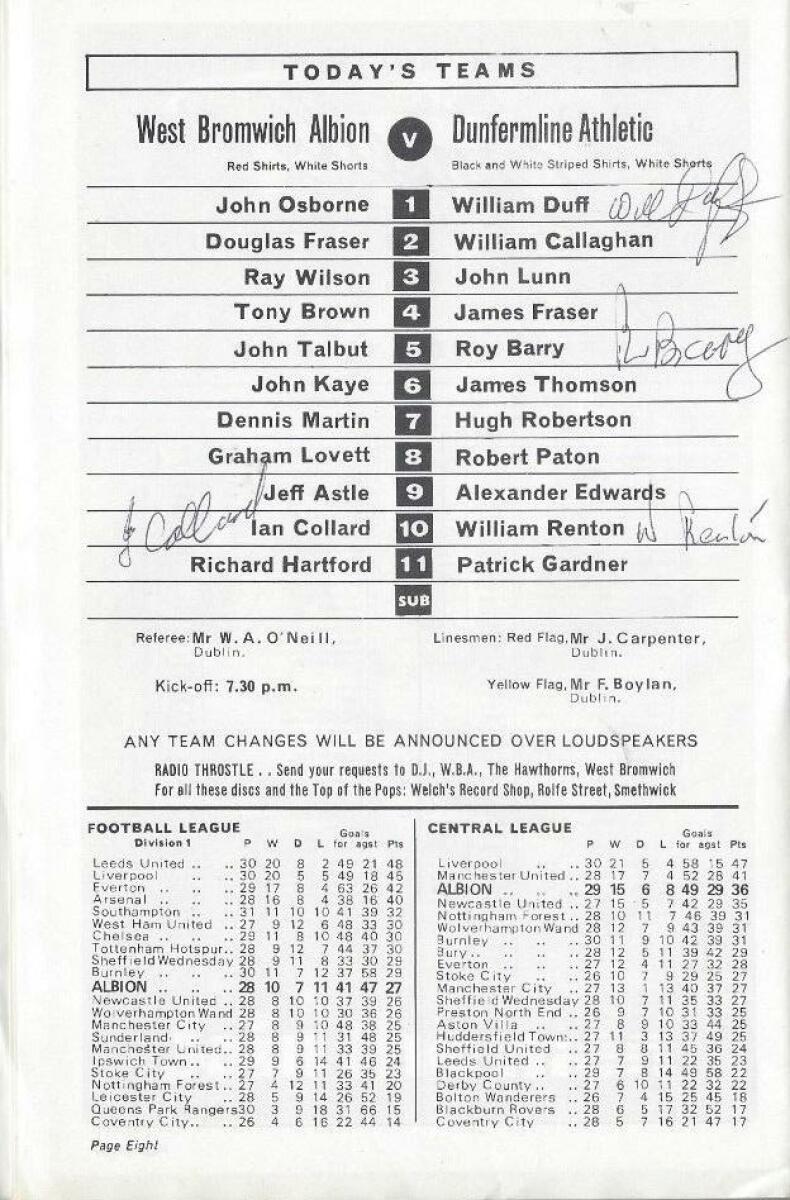 TODAY'S TEAMS
West Bromwich Albion v Dunfermline Athletic
Red Shirts, White Shorts Black and White Striped Shirts, White Shorts
John Osborne 1 William Duff
Douglas Fraser 2 William Callaghan
Ray Wilson 3 John Lunn
Tony Brown 4 James Fraser
John Talbut 5 Roy Barry
R Barry
John Kaye 6 James Thomson
Dennis Martin 7 Hugh Robertson
Graham Lovett 8 Robert Paton
Jeff Astle 9 Alexander Edwards
Collard Ian Collard 10 William Renton W Renton
Richard Hartford 11 Patrick Gardner
SUB
Referee: Mr W. A. O'Neill, Linesmen: Red Flag, Mr J. Carpenter,
Dublin. Dublin.
Kick-off: 7.30 p.m. Yellow Flag, Mr F. Boylan,
Dublin.
ANY TEAM CHANGES WILL BE ANNOUNCED OVER LOUDSPEAKERS
RADIO THROSTLE . . Send your requests to D.J., W.B.A., The Hawthorns, West Bromwich
For all these discs and the Top of the Pops: Welch's Record Shop, Rolfe Street, Smethwick
FOOTBALL LEAGUE
Goals
Division 1 P W D L for agst Pts
Leeds United .. .. 30 20 8 2 49 21 48
Liverpool .. .. 30 20 5 5 49 18 45
Everton .. .. .. 29 17 8 4 63 26 42
Arsenal .. .. .. 28 16 8 4 38 16 40
Southampton .. .. 31 11 10 10 41 39 32
West Ham United .. 27 9 12 6 48 33 30
Chelsea .. .. .. 29 11 8 10 48 40 30
Tottenham Hotspur.. 28 9 12 7 44 37 30
Sheffield Wednesday 28 9 11 8 33 30 29
Burnley .. .. .. 30 11 7 12 37 58 29
ALBION .. .. .. 28 10 7 11 41 47 27
Newcastle United .. 28 8 10 10 37 39 26
Wolverhampton Wand 28 8 10 10 30 36 26
Manchester City .. 27 8 9 10 48 38 25
Sunderland .. .. 28 8 9 11 31 48 25
Manchester United.. 28 8 9 11 33 39 25
Ipswich Town.. .. 29 9 6 14 41 46 24
Stoke City .. .. 27 7 9 11 26 35 23
Nottingham Forest.. 27 4 12 11 33 41 20
Leicester City .. 28 5 9 14 26 52 19
Queens Park Rangers 30 3 9 18 31 66 15
Coventry City.. .. 26 4 6 16 22 44 14
CENTRAL LEAGUE
Goals
P W D L for agst Pts
Liverpool .. .. 30 21 5 4 58 15 47
Manchester United .. 28 17 7 4 52 28 41
ALBION .. .. .. 29 15 6 8 49 29 36
Newcastle United .. 27 15 5 7 42 29 35
Nottingham Forest .. 28 10 11 7 46 39 31
Wolverhampton Wand 28 12 7 9 43 39 31
Burnley .. .. 30 11 9 10 42 39 31
Bury .. .. .. 28 12 5 11 39 42 29
Everton .. .. .. 27 12 4 11 27 32 28
Stoke City .. .. 26 10 7 9 29 25 27
Manchester City .. 27 13 1 13 40 37 27
Sheffield Wednesday 28 10 7 11 35 33 27
Preston North End .. 26 9 7 10 31 33 25
Aston Villa .. .. 27 8 9 10 33 44 25
Huddersfield Town .. 27 11 3 13 37 49 25
Sheffield United .. 27 8 8 11 45 36 24
Leeds United .. .. 27 7 9 11 22 35 23
Blackpool .. .. 29 7 8 14 49 58 22
Derby County .. .. 27 6 10 11 22 32 22
Bolton Wanderers .. 26 7 4 15 25 45 18
Blackburn Rovers .. 28 6 5 17 32 52 17
Coventry City .. 28 5 7 16 21 47 17
Page Eight